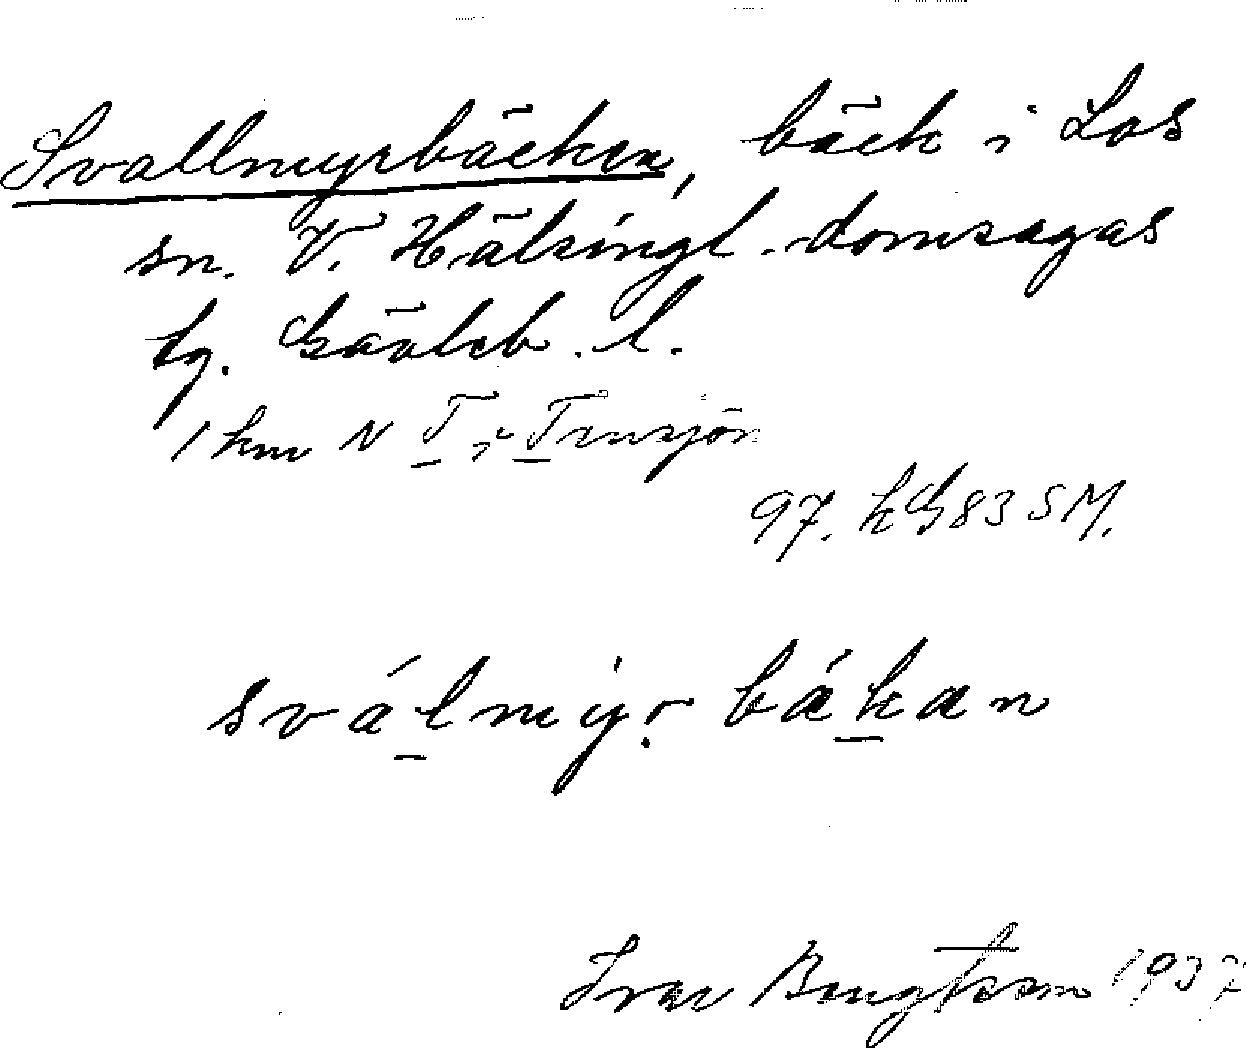 Svallmyrbäcken, bäck i Los
sn. V. Hälsingl. domsagas
tg. Gävleb. l.
1 km N T i Tensjön
97. kG83 SM.
sválmýr bákan
Ivar Bengtsson 1937